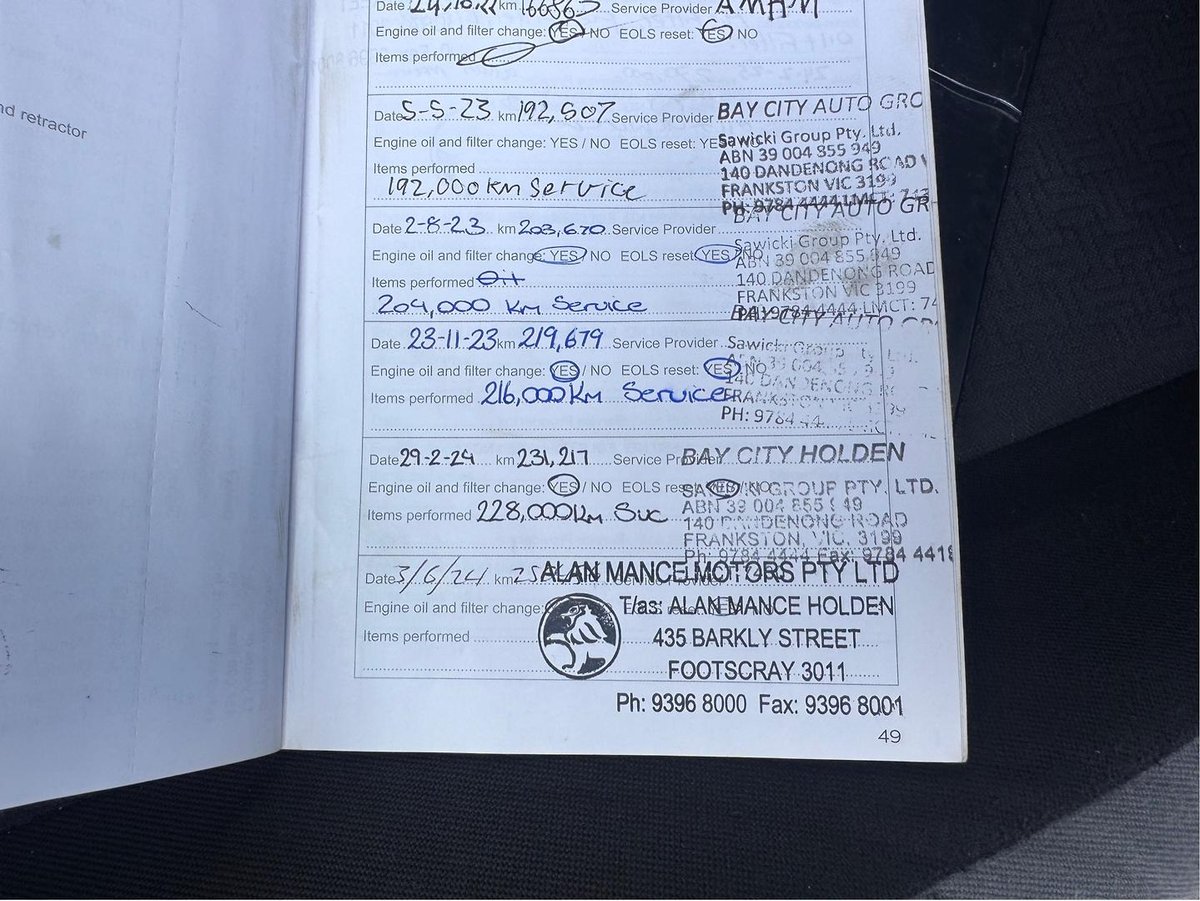 nd retractor
Date 24.10.22 km 166863 Service Provider AMAM
Engine oil and filter change: YES / NO EOLS reset: YES / NO
Items performed
Date 5-5-23 km 192,507 Service Provider BAY CITY AUTO GRO
Engine oil and filter change: YES / NO EOLS reset: YES
Sawicki Group Pty. Ltd.
ABN 39 004 855 949
Items performed 140 DANDENONG ROAD
192,000km Service FRANKSTON VIC 3199
PH: 9784 4444 LMCT: 743
BAY CITY AUTO GR
Date 2-8-23 km 203,670 Service Provider
Sawicki Group Pty. Ltd.
Engine oil and filter change: YES / NO EOLS reset: YES / NO
ABN 39 004 855 949
Items performed Oil 140 DANDENONG ROAD
FRANKSTON VIC 3199
204,000 Km Service PH: 9784 4444 LMCT: 74
BAY CITY AUTO
Date 23-11-23 km 219,679 Service Provider Sawicki Group
Engine oil and filter change: YES / NO EOLS reset: YES / NO
140 DANDENONG
Items performed 216,000Km Service FRANKSTON
PH: 9784
BAY CITY HOLDEN
Date 29-2-24 km 231,217 Service Provider
Engine oil and filter change: YES / NO EOLS reset: YES / NO
GROUP PTY. LTD.
ABN 39 004 855 949
Items performed 228,000Km Svc 140 DANDENONG ROAD
FRANKSTON, VIC. 3199
Ph: 9784 4444 Fax: 9784 4418
Date 3/6/24 km ALAN MANCE MOTORS PTY LTD
Engine oil and filter change: T/as: ALAN MANCE HOLDEN
Items performed 435 BARKLY STREET
FOOTSCRAY 3011
Ph: 9396 8000 Fax: 9396 8001
49